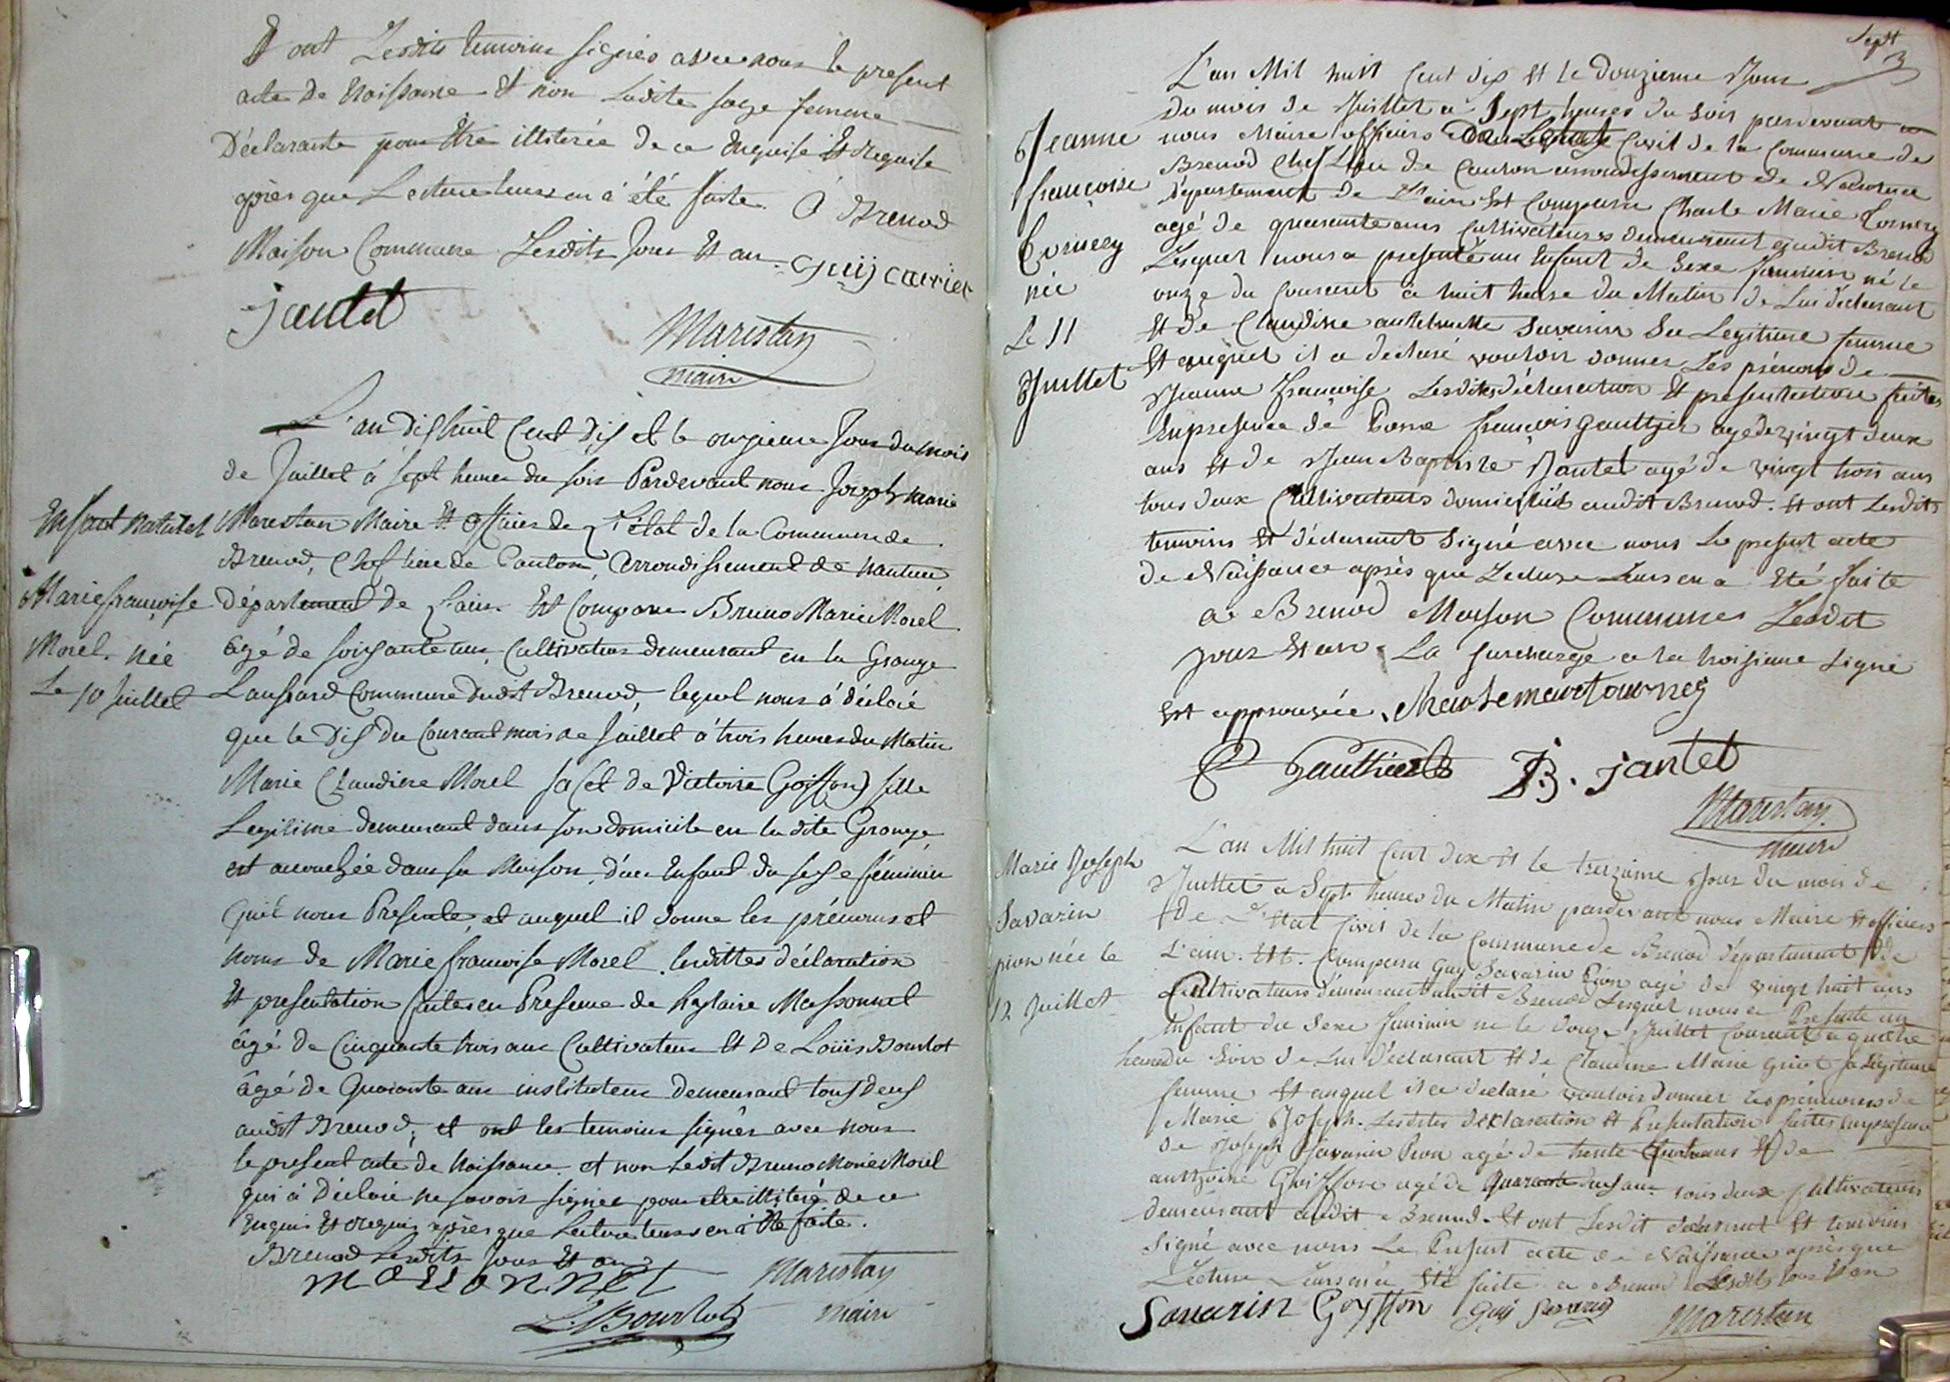 Et ont Lesdits temoins signés avec nous le present
acte de Naissance Et non Ladite sage femme
Déclarante pour Etre illiterée de ce Enquise Et Requise
après que Lecture leurs en à été faite. à Brenod
Maison Commune Lesdits Jour Et an. Guÿ carrier
Jantet
Marestan
maire
L'an dishuit Cent Dis et le onzieme Jour du mois
de Juillet à sept heures du soir Pardevant nous Joseph Marie
Enfant naturel
Marestan Maire Et officier de L'état de la Commune de
Brenod, Chef lieu de Canton, Arrondissement de Nantua
Marie françoise
Morel. née
Le 10 Juillet
Département de L'ain. Est Comparu Bruno Marie Morel
âgé de soixante ans, Cultivateur demeurant en la Grange
Commune dudit Brenod, lequel nous à déclaré
que le Dis du Courant mois de Juillet à trois heures du Matin
Marie Claudine Morel sa (et de Victoire Goiffon) fille
Legitime demeurant dans son domicile en la dite Grange
est accouchée dans sa Maison, d'un Enfant du sexe féminin
qu'il nous Presente, et auquel il donne les prénoms et
noms de Marie françoise Morel. lesdittes déclaration
Et presentation faites en Presence de hylaire Massonnet
âgé de Cinquante trois ans Cultivateur Et De Loüis Bourlot
âgé de Quarante ans instituteur demeurant tous deux
audit Brenod; et ont les temoins signés avec nous
le present acte de Naissance et non ledit Bruno Marie Morel
qui à Déclaré ne savoir signer pour etre illiteré de ce
Enquis Et Requis après que Lecture leurs en à été faite.
Brenod Lesdits Jour Et an
Massonnet
Marestan
L. Bourlot
maire
Sept
3
L'an Mil huit Cent dix Et le Douzieme Jour
Du mois de Juillet à Sept heures du Soir pardevant
Jeanne
françoise
Tornery
née
Le 11
Juillet
nous Maire officier De Civil de la Commune de
Brenod Chef Lieu de Canton arrondissement de Nantua
Département de L'ain Est Comparu Charle Marie Tornery
agé de quarante ans Cultivateurs demeurant audit Brenod
Lequel nous a presenté un Enfant de Sexe Feminin né le
onze du Courant à huit heure du Matin de Lui Déclarant
Et de Claudine Savarin Sa Legitime femme
Et auquel il a declaré vouloir donner Les prénoms de
Jeanne Françoise Lesdites déclaration Et presentation faites
En presence de Pierre françois gauthier agé de vingt deux
ans Et de Jean Baptiste Jantet agé de vingt trois ans
tous deux Cultivateurs domicilié audit Brenod. Et ont Lesdits
temoins Et déclarant Signé avec nous Le present acte
de Naissance après que Lecture Leurs en a Eté faite
a Brenod Maison Commune Lesdit
jour Et an. La surcharge a la troisieme Ligne
Est approuvée.
P gauthier J.B. jantet
Marestan
maire
L'an Mil huit Cent dix Et le treizieme Jour du mois de
Marie Joseph
Savarin
pion née le
12 Juillet
Juillet a Sept heures du Matin pardevant nous Maire Et officiers
de L'Etat Civil de la Commune de Brenod département de
L'ain. Est Comparu Guy Savarin Pion agé de vingt huit ans
Cultivateurs demeurant audit Brenod Lequel nous a Presenté un
Enfant du Sexe feminin né le Douze Juillet Courant a quatre
heure du Soir de Lui Déclarant Et de Claudine Marie Sa Legitime
femme Et auquel il a declaré vouloir Donner Les prénoms de
Marie Joseph. Lesdites Déclaration Et Presentation faites En presence
de Joseph Savarin Pion agé de trente ans Et de
anthoine Goiffon agé de Quarante ans tous deux Cultivateurs
demeurant audit Brenod. Et ont Lesdit déclarant Et temoins
Signé avec nous Le Present acte de Naissance après que
Lecture Leurs en à Eté faite a Brenod Lesdits Jour Et an
Savarin Goyffon Guy Savarin
Marestan